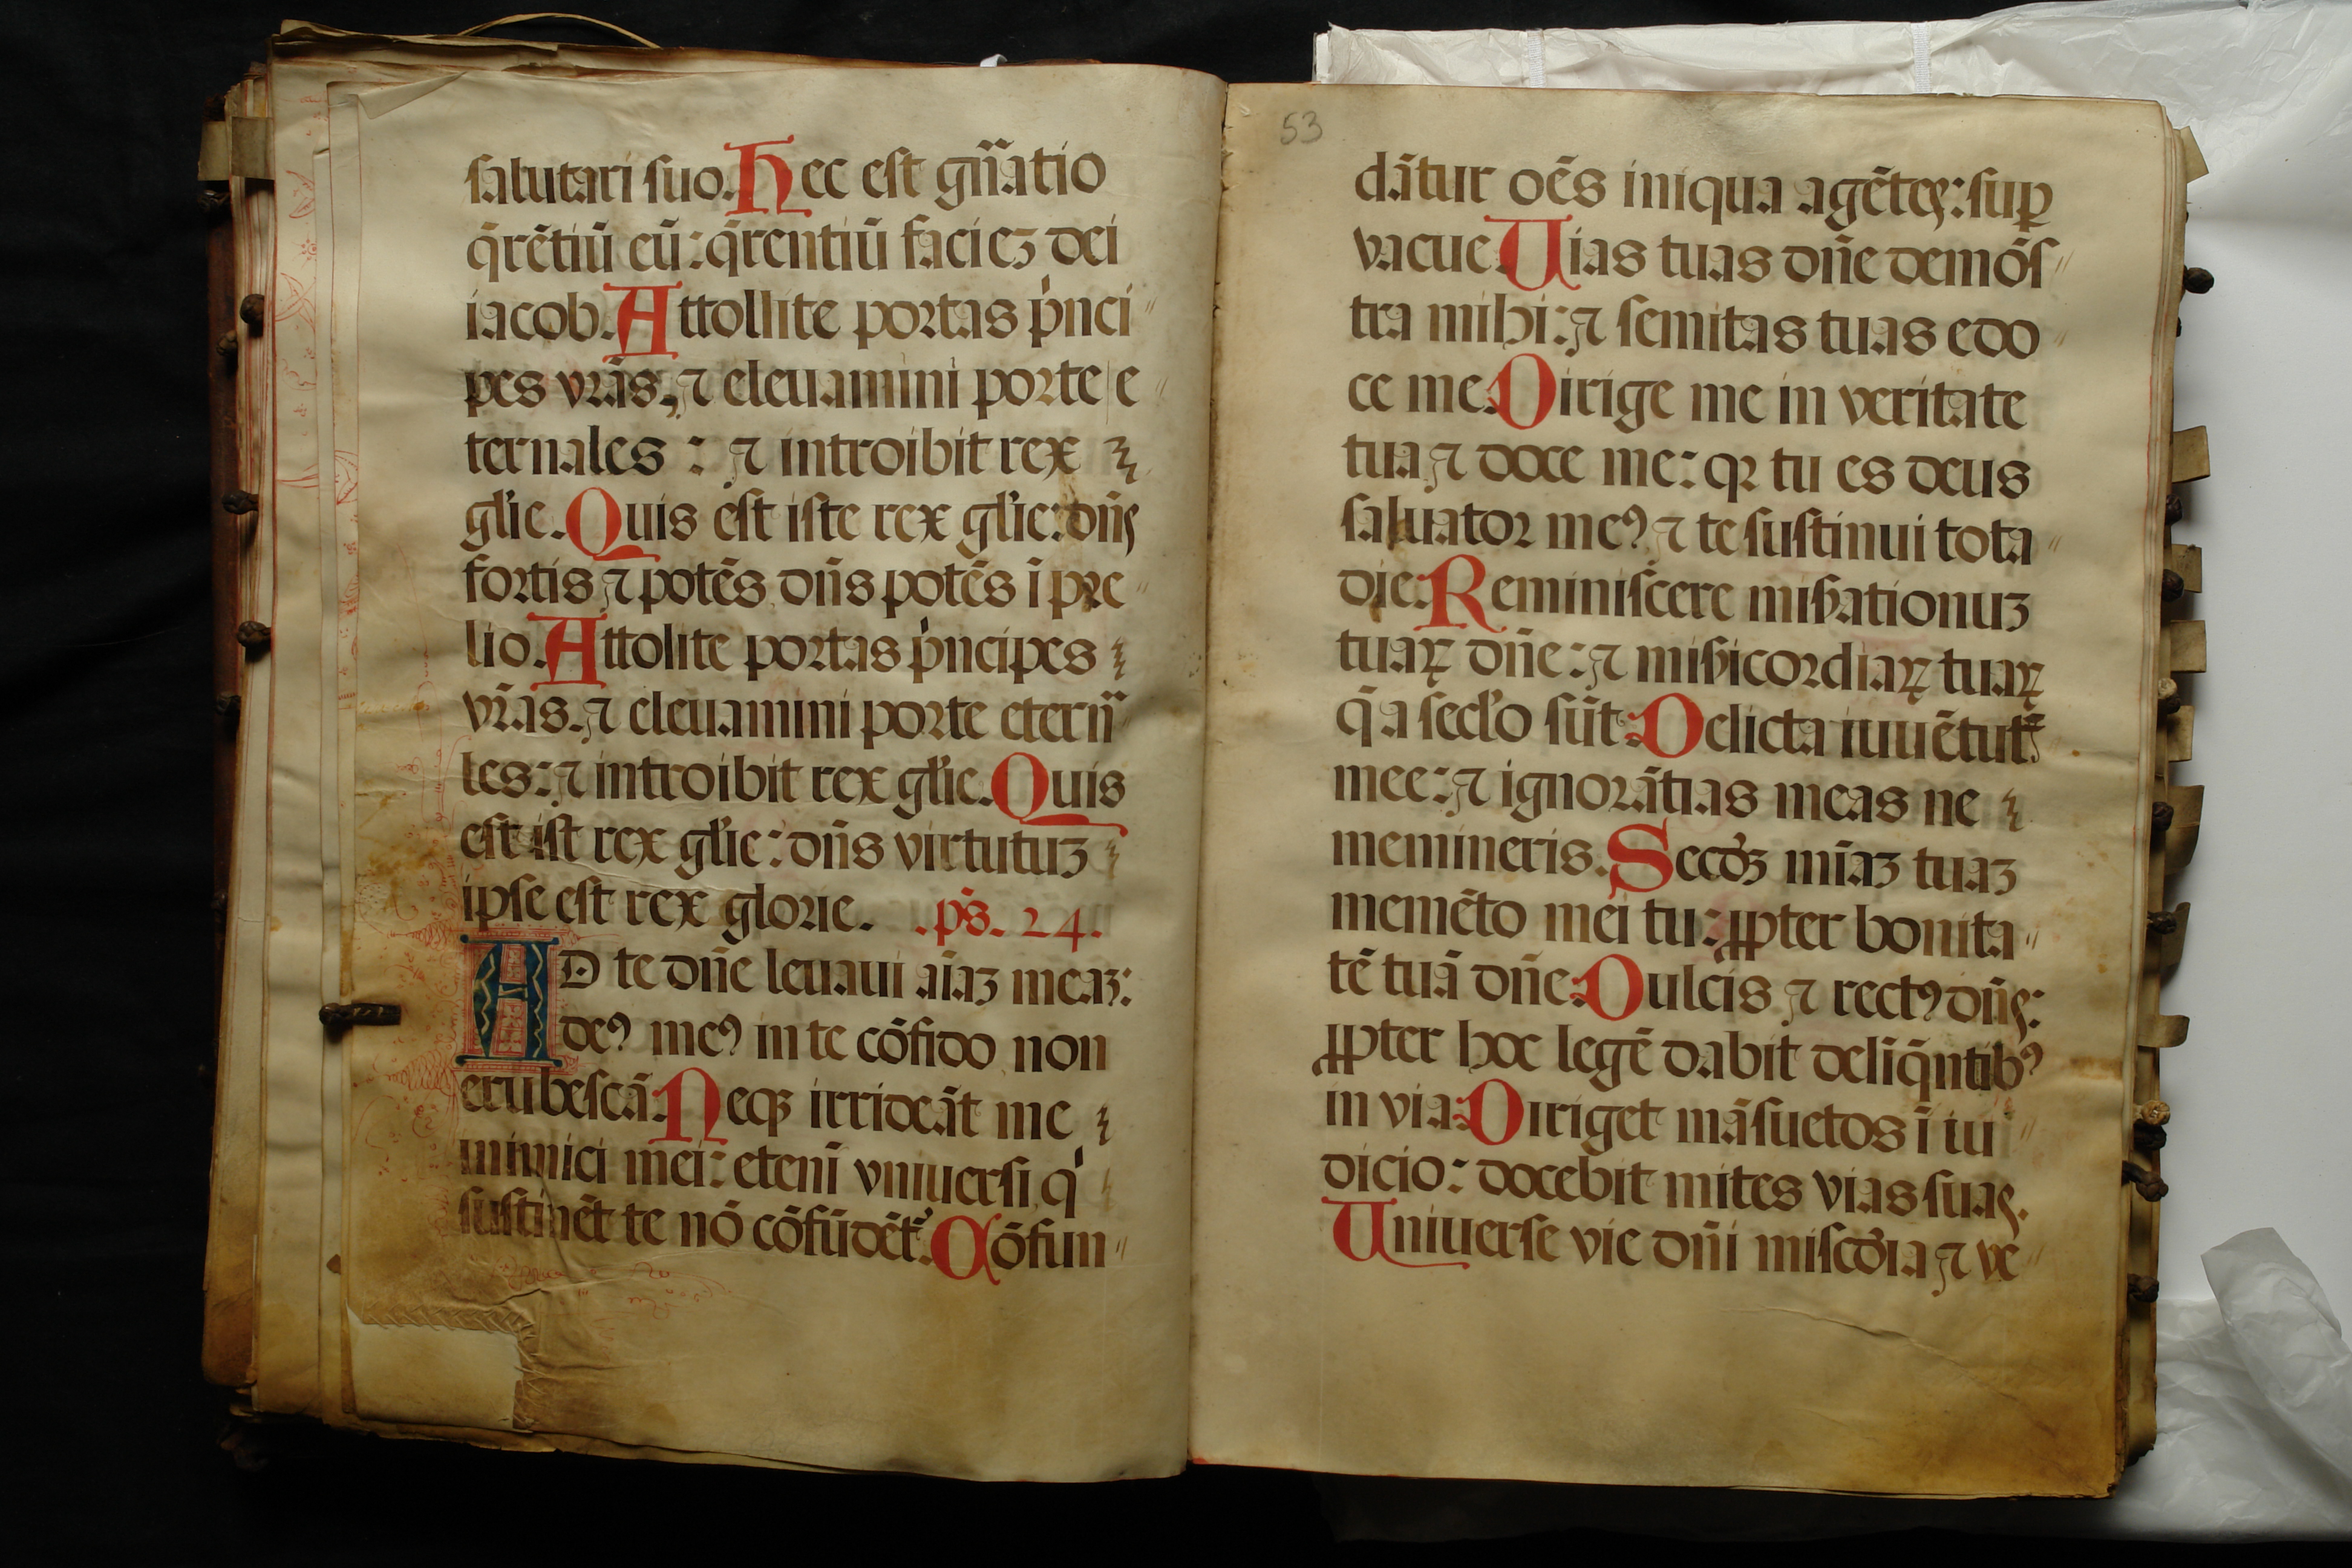 salutari suo. Hec est gn̄atio
q̄rētiū eū: q̄rentiū faciēꝫ dei
iacob. Attollite portas p̍nci
pes vrās, ⁊ eleuamini porte e
ternales : ⁊ introibit rex
gl̄ie. Quis est iste rex gl̄ie: dn̄s
fortis ⁊ potēs dn̄s potēs ī pre
lio. Attolite portas p̍ncipes
vr̄as. ⁊ eleuamini porte eterna
les: ⁊ introibit rex gl̄ie. Quis
est ist rex gl̄ie: dn̄s virtutuꝫ
ipse est rex glorie. .ps̄. 24.
AD te dn̄e leuaui aīaꝫ meaꝫ:
deꝰ meꝰ in te cōfido non
erubescā. Neqꝫ irrideāt me
inimici mei: etenī vniuersi q̍
sustinēt te nō cōfūdēt᷑. Cōfun
53
dātur oēs iniqua agētes: suꝑ
vacue. Uias tuas dn̄e demōs
tra mihi: ⁊ semitas tuas edo
ce me. Dirige me in veritate
tua ⁊ doce me: qꝛ tu es deus
saluator meꝰ, ⁊ te sustinui tota
die. Reminiscere mis̄ationuꝫ
tuaꝝ dn̄e: ⁊ mis̄icordiaꝝ tuaꝝ
q̄ a secl̄o sūt. Delicta iuuētutꝭ
mee: ⁊ ignorātias meas ne
memineris. Secd̄ꝫ mīaꝫ tuaꝫ
memēto mei tu: ꝓpter bonita
tē tuā dn̄e. Dulcis ⁊ rectꝰ dn̄s:
ꝓpter hoc legē dabit deliq̄ntibꝰ
in via. Diriget māsuetos ī iu
dicio: docebit mites vias suas.
Uniuerse vie dn̄i miscd̄ia ⁊ ve